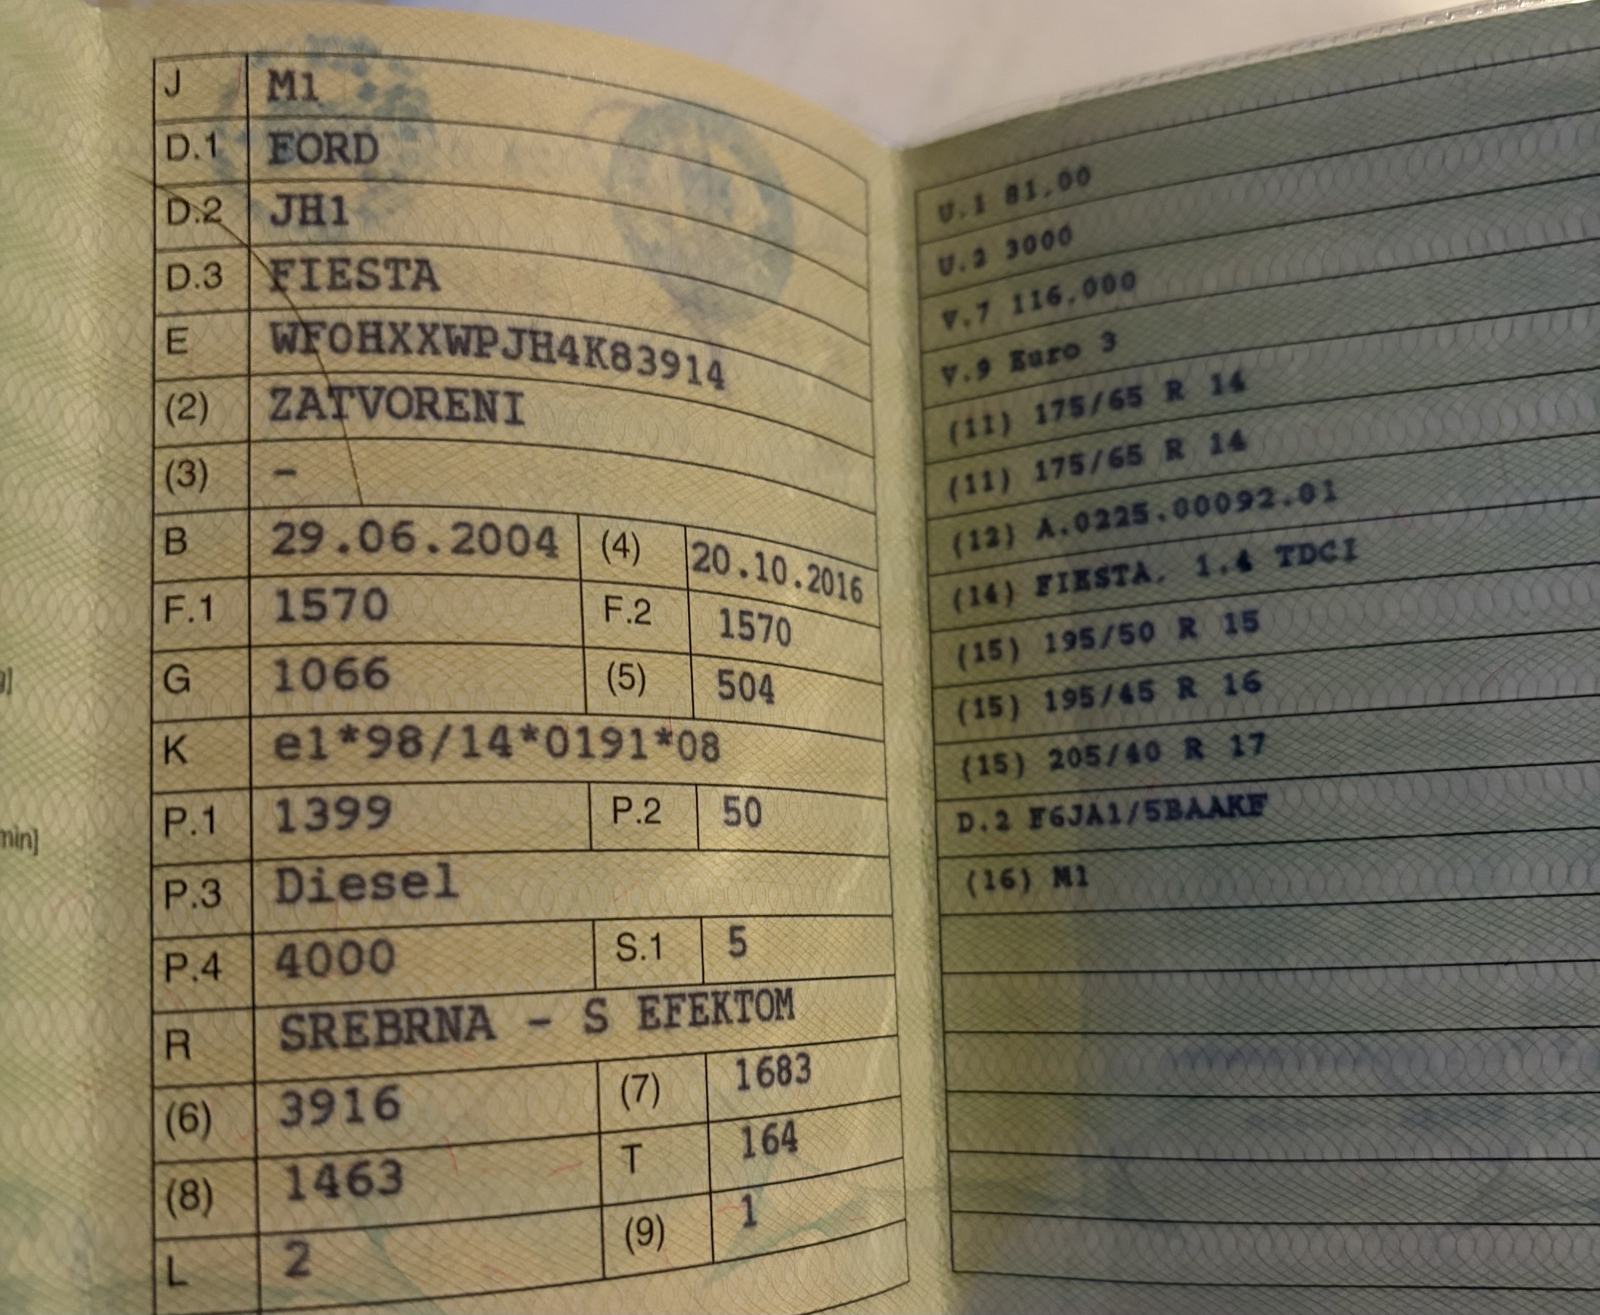 J M1
D.1 FORD
D.2 JH1
D.3 FIESTA
E WF0HXXWPJH4K83914
(2) ZATVORENI
(3) -
B 29.06.2004 (4) 20.10.2016
F.1 1570 F.2 1570
G 1066 (5) 504
K e1*98/14*0191*08
P.1 1399 P.2 50
P.3 Diesel
P.4 4000 S.1 5
R SREBRNA - S EFEKTOM
(6) 3916 (7) 1683
(8) 1463 T 164
L 2 (9) 1
min]
U.1 81,00
U.2 3000
V.7 116,000
V.9 Euro 3
(11) 175/65 R 14
(11) 175/65 R 14
(12) A.0225.00092.01
(14) FIESTA, 1.4 TDCI
(15) 195/50 R 15
(15) 195/45 R 16
(15) 205/40 R 17
D.2 F6JA1/5BAAKF
(16) M1